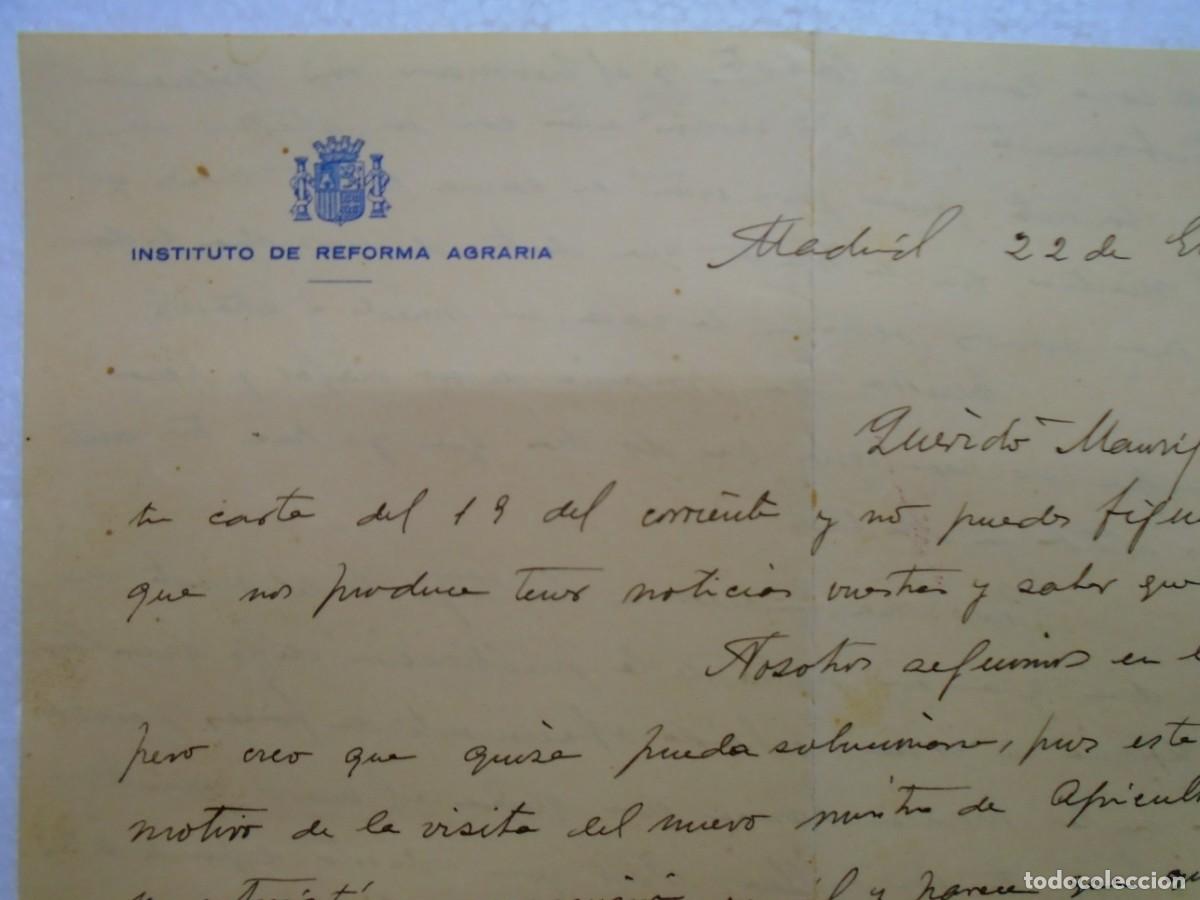 INSTITUTO DE REFORMA AGRARIA
Madrid 22 de
Querido
tu carta del 19 del corriente y no puedes figu
que nos produce tener noticias vuestras y saber que
Nosotros seguimos en
pero creo que quizá pueda solucionarse, pues este
motivo de la visita del nuevo ministro de Agricult
y parece que
todocoleccion